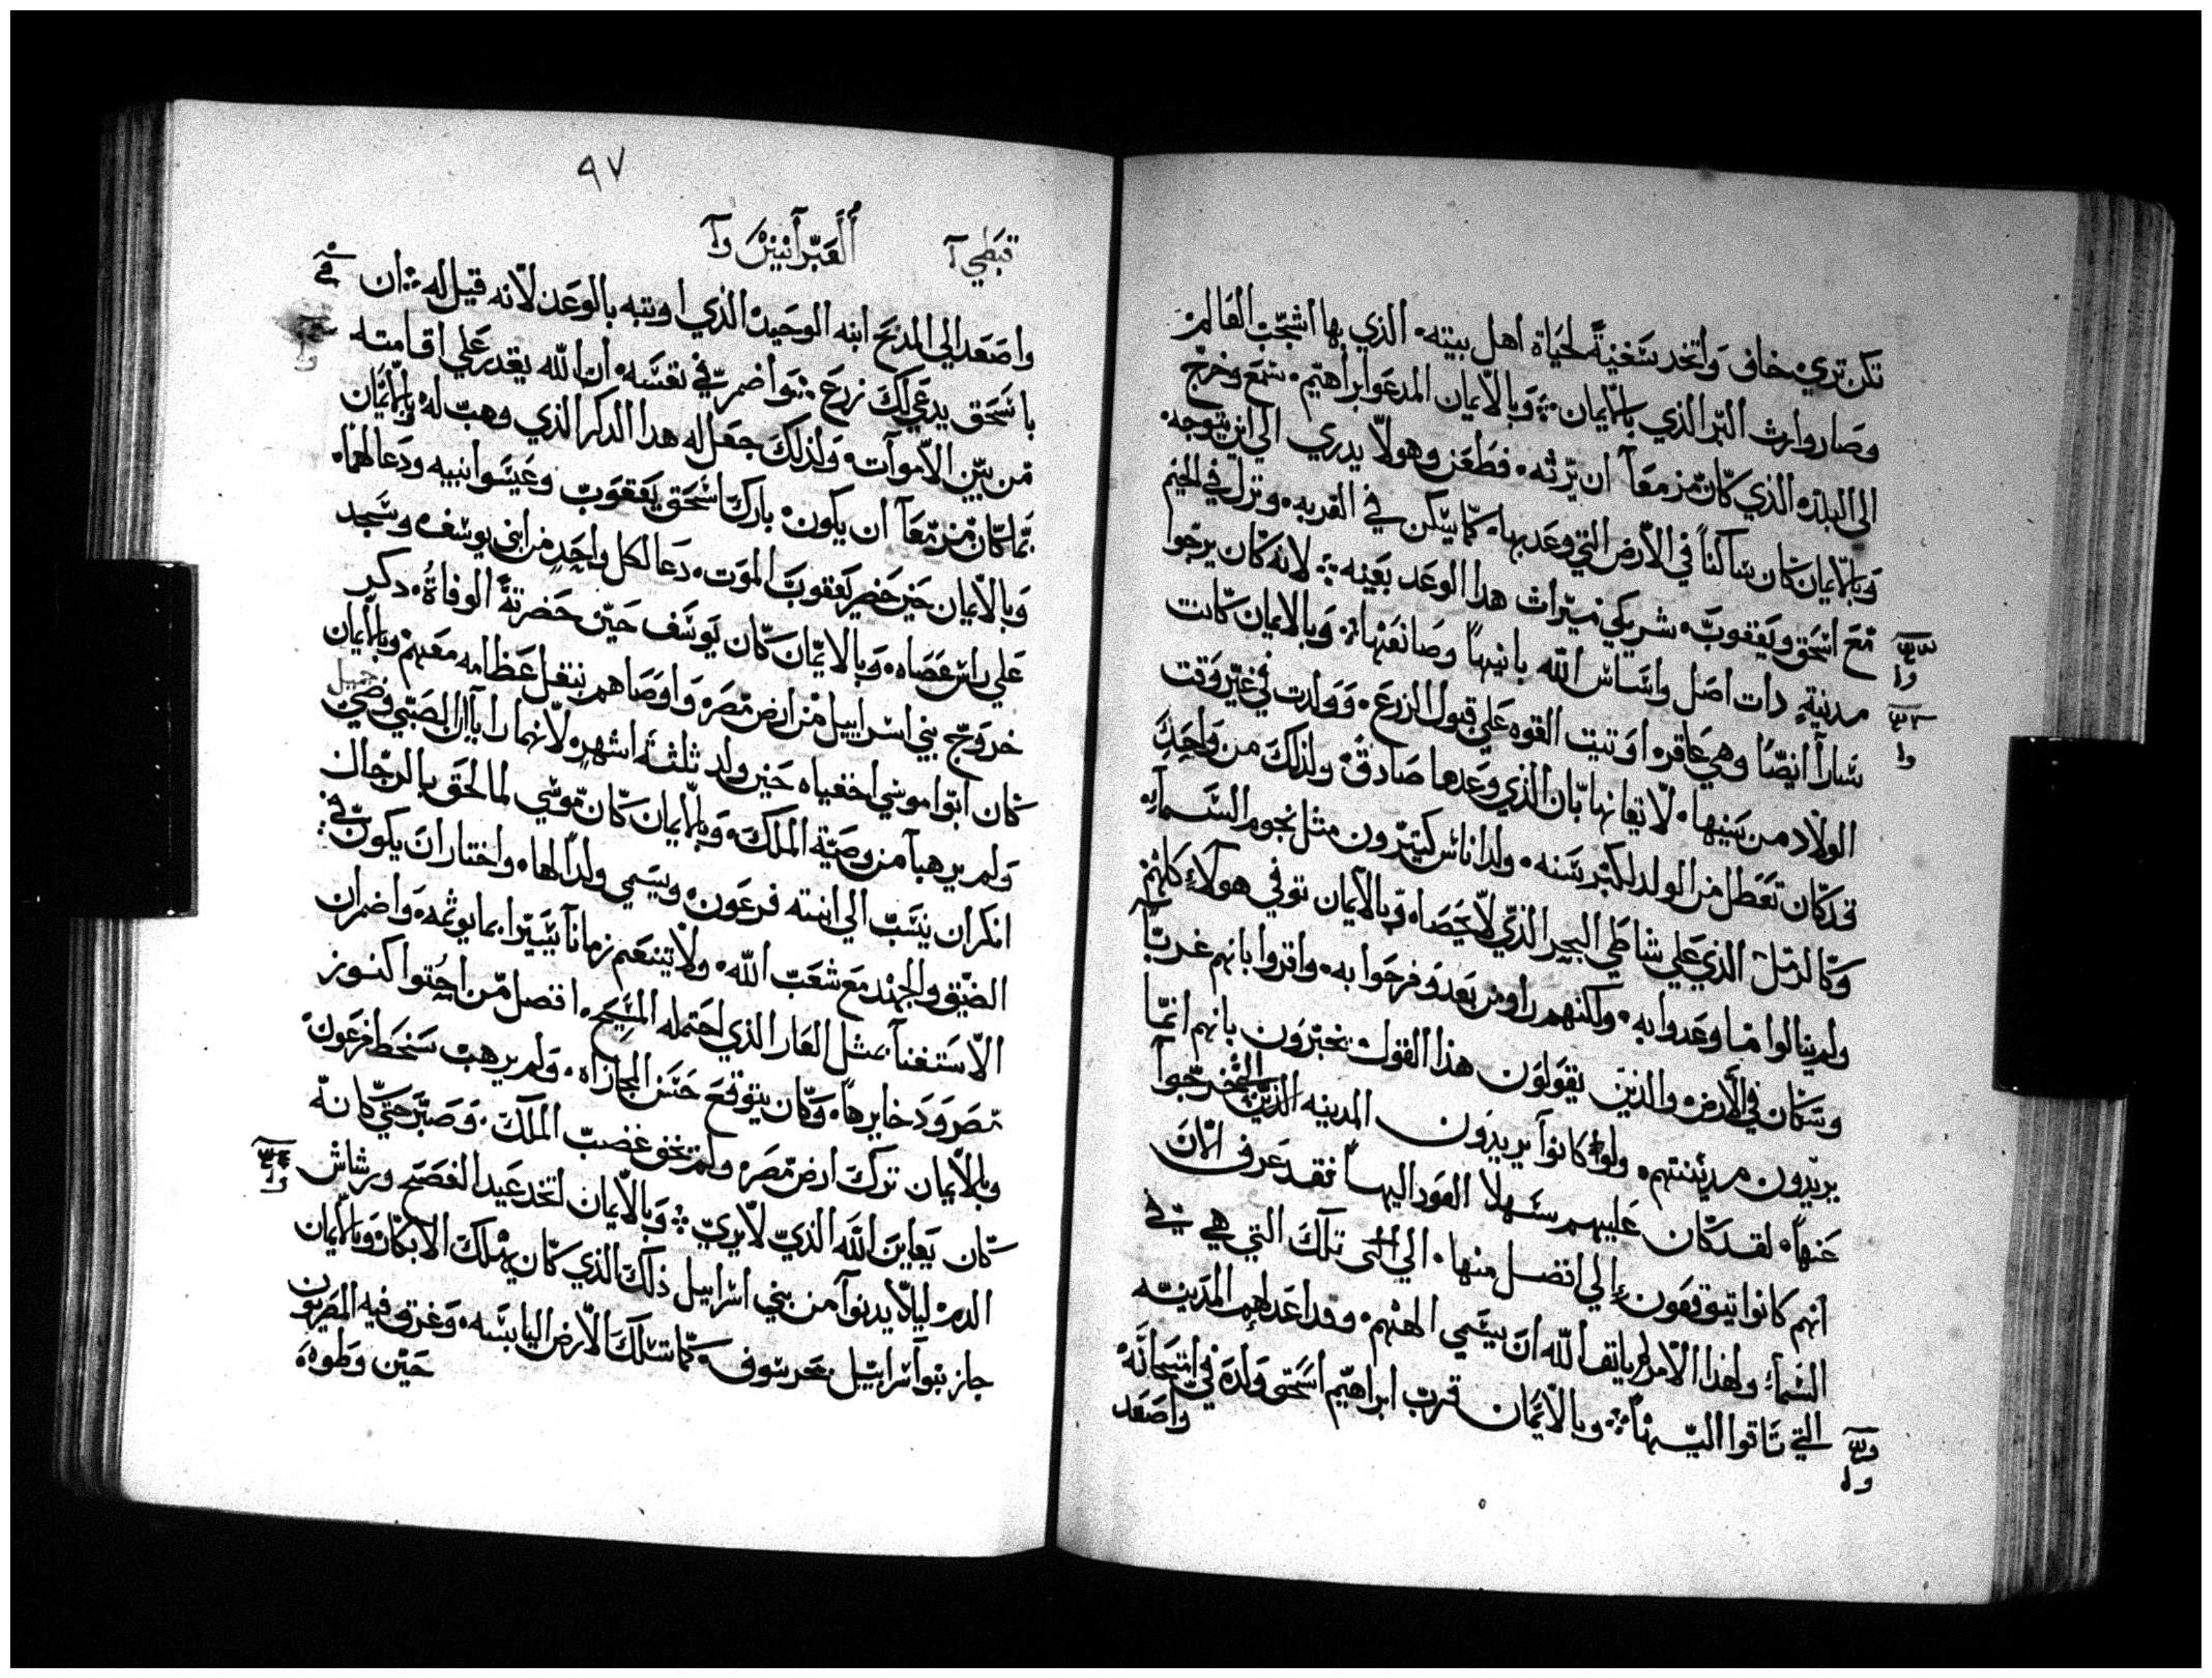 تكن تري خاف واتخد سفينةً لحياة اهل بيته الذي بها اشجب العالم
وصار وارث البر الذي بالايمان وبالايمان المدعو ابراهيم سمع وخرج
الى البلده الذي كان مزمعآ ان يرثه فظعن وهو لا يدري الي اين يتوجه
وبالايمان كان ساكناً في الارض التي وعد بها كما يسكن في الغربه ونزل في الخيم
مع اسحق ويعقوب شريكي ميراث هدا الوعد بعينه لانه كان يرجوا
مدينةٍ دات اصل واساس الله بانيهاً وصانعها وبالايمان كانت
سارآ ايضًا وهي عاقره اوتيت القوه علي قبول الزرع وولدت في غير وقت
الولاد من سنيها لايقانها بان الذي وعدها صادق ولذلك من واحدٍ
قد كان تعطل من الولد لكبر سنه ولد اناس كتيرون مثل نجوم السمآء
وكالرمل الذي علي شاطي البحر الذي لا يحصاه وبالايمان توفي هولاء كلهم
ولم ينالوا ما وعدوا به ولكنهم راوه من بعد وفرحوا به واقروا بانهم غربآ
وسكان في الارض والذين يقولون هذا القول يخبرون بانهم انما
يريدون مدينتهم ولو كانوآ يريدون المدينه التي خرجوآ
عنهاً لقد كان عليهم سهلا العود اليهاً فقد عرف الان
انهم كانوا يتوقعون الي افضل منها الي تلك التي هي في
السماء ولهذا الامر لم يانف الله ان يسمي الههم وقد اعد لهم المدينه
التي تاقوا اليهاً وبالايمان قرب ابراهيم اسحق ولده في امتحانه
واصعد
٩٧
قبطي آ
العبرانيين وآ
واصعد الي المدبح ابنه الوحيد الذي اوتيه بالوعد لانه قيل له ان
باسحق يدعي لك زرع واضمر في نفسه ان الله يقدر علي اقامته
من بين الاموآت ولذلك جعل له هدا الدكر الذي وهب له وبالايمان
بما كان مزمعآ ان يكون بارك اسحق يعقوب وعيسوا بنيه ودعا لهما
وبالايمان حين حضر يعقوب الموت دعا لكل واحدٍ من ابني يوسف وسجد
علي راس عصاه وبالايمان كان يوسف حين حضرته الوفاة دكر
خروج بني اسراييل من ارض مصر واوصاهم بنقل عظامه معهم وبالايمان
كان ابوا موسي اخفياه حين ولد ثلثة اشهر لانهما رايا ان الصبي وضي
ولم يرهبآ من وصية الملك وبالايمان كان موسي لما لحق بالرجال
انكر ان ينسب الي ابنته فرعون ويسمي ولداً لها واختار ان يكون في
الضيق والجهد مع شعب الله ولا يتنعم زمانآ يسيرا بما يوثمه واضمر ان
الاستغنآ بمثل العار الذي احتمله المسيح افضل من احتوا كنوز
مصر ودخايرهاً وكان يتوقع حسن المجازاه ولم يرهب سخط فرعون
وبالايمان ترك ارض مصر ولم يخف غضب الملك وصبر حتي كانه
كان يعاين الله الذي لا يري وبالايمان اتخد عيد الفصح ورشاش
الدم ليلا يدنوآ من بني اسراييل ذلك الذي كان يهلك الابكار وبالايمان
جاز بنوآ اسراييل بحر سوف كما تسلك الارض اليابسه وغرق فيه المصريون
حين وطوه